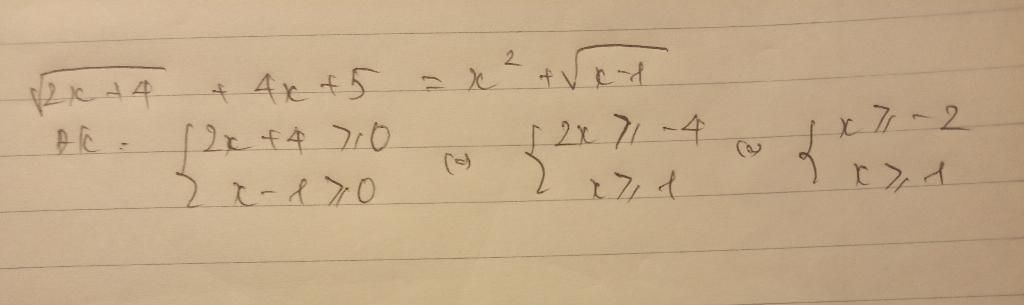 √(2x+4) + 4x + 5 = x² + √(x-1)
ĐK: { 2x + 4 ≥ 0 ; x - 1 ≥ 0 (=) { 2x ≥ -4 ; x ≥ 1 (=) { x ≥ -2 ; x ≥ 1